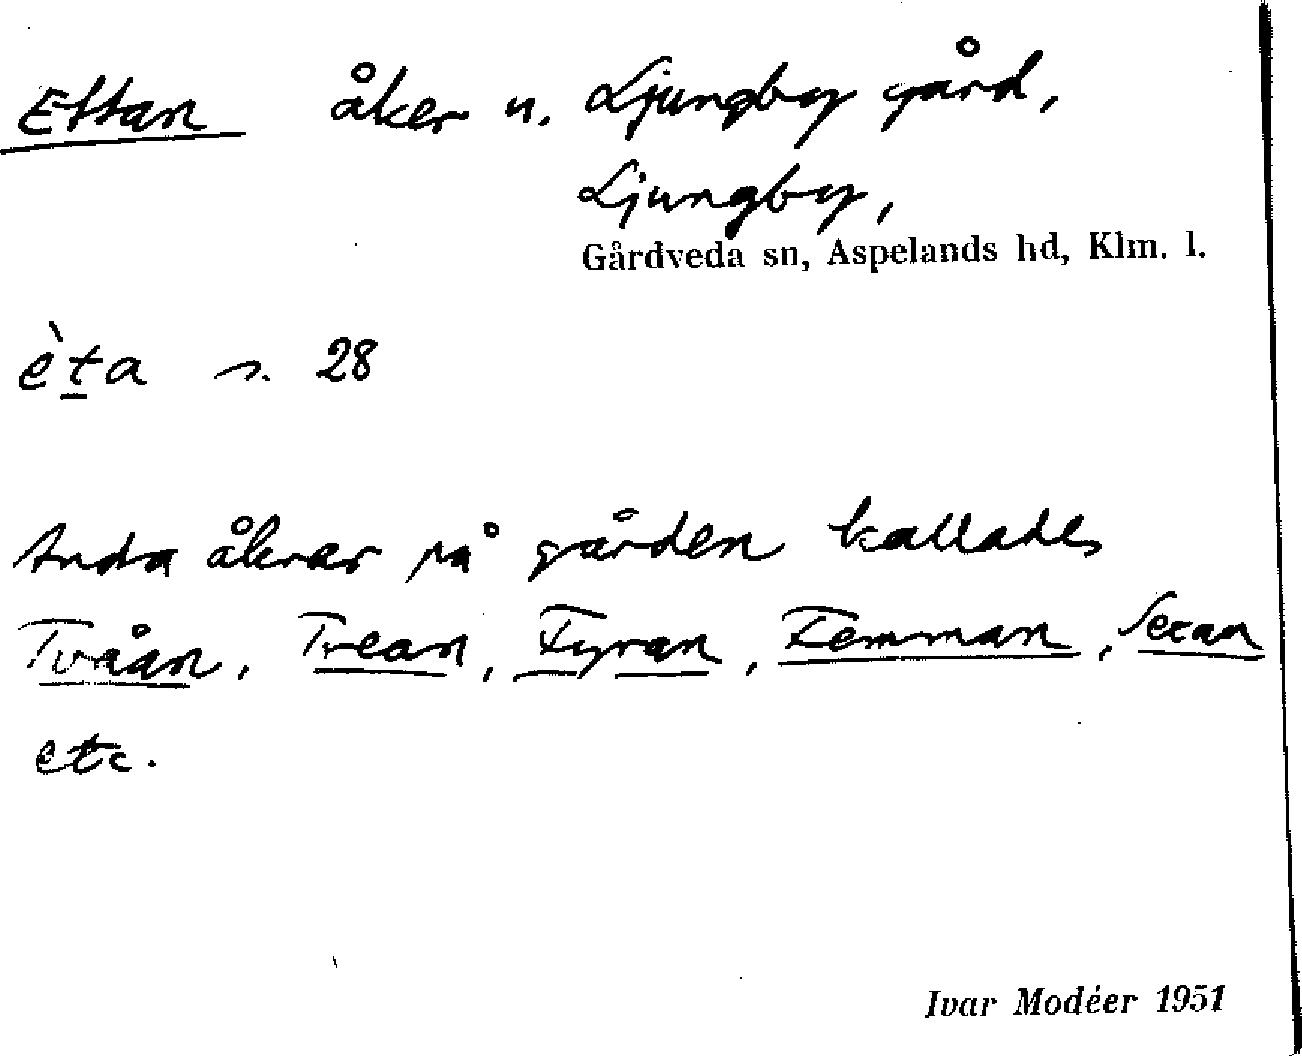 Ettan åker u. Ljungby gård,
Ljungby,
Gårdveda sn, Aspelands hd, Klm. l.
èt̲a s. 28
Andra åkrar på gården kallades
Tvåan, Trean, Fyran, Femman, Sexan
etc.
Ivar Modéer 1951